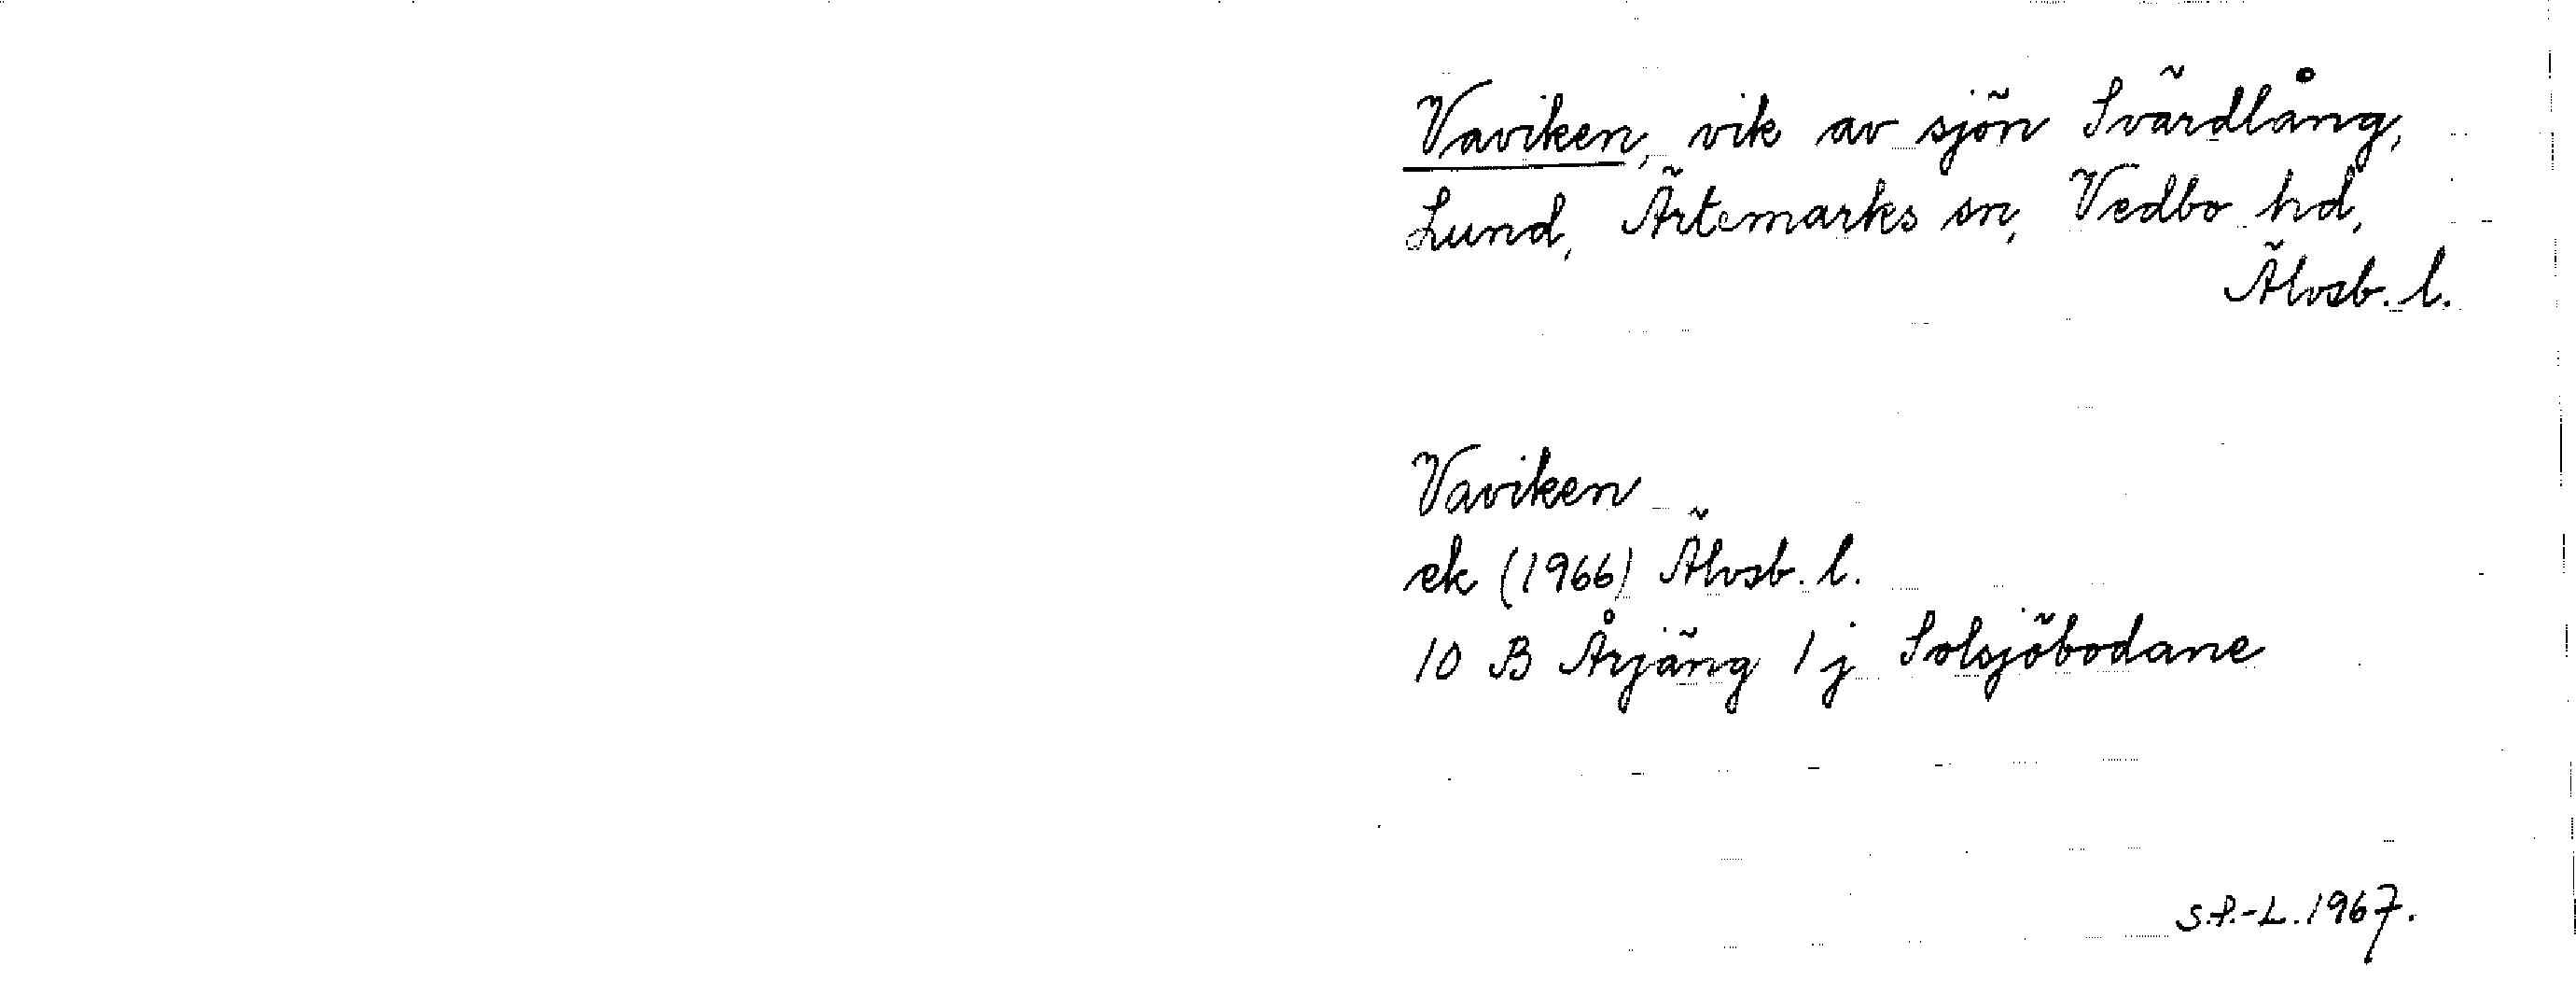 Vaviken, vik av sjön Svärdlång,
Lund, Ärtemarks sn, Vedbo hd,
Älvsb. l.
Vaviken
ek (1966) Älvsb. l.
10 B Årjäng 1 j Solsjöbodane
S.P.-L. 1967.